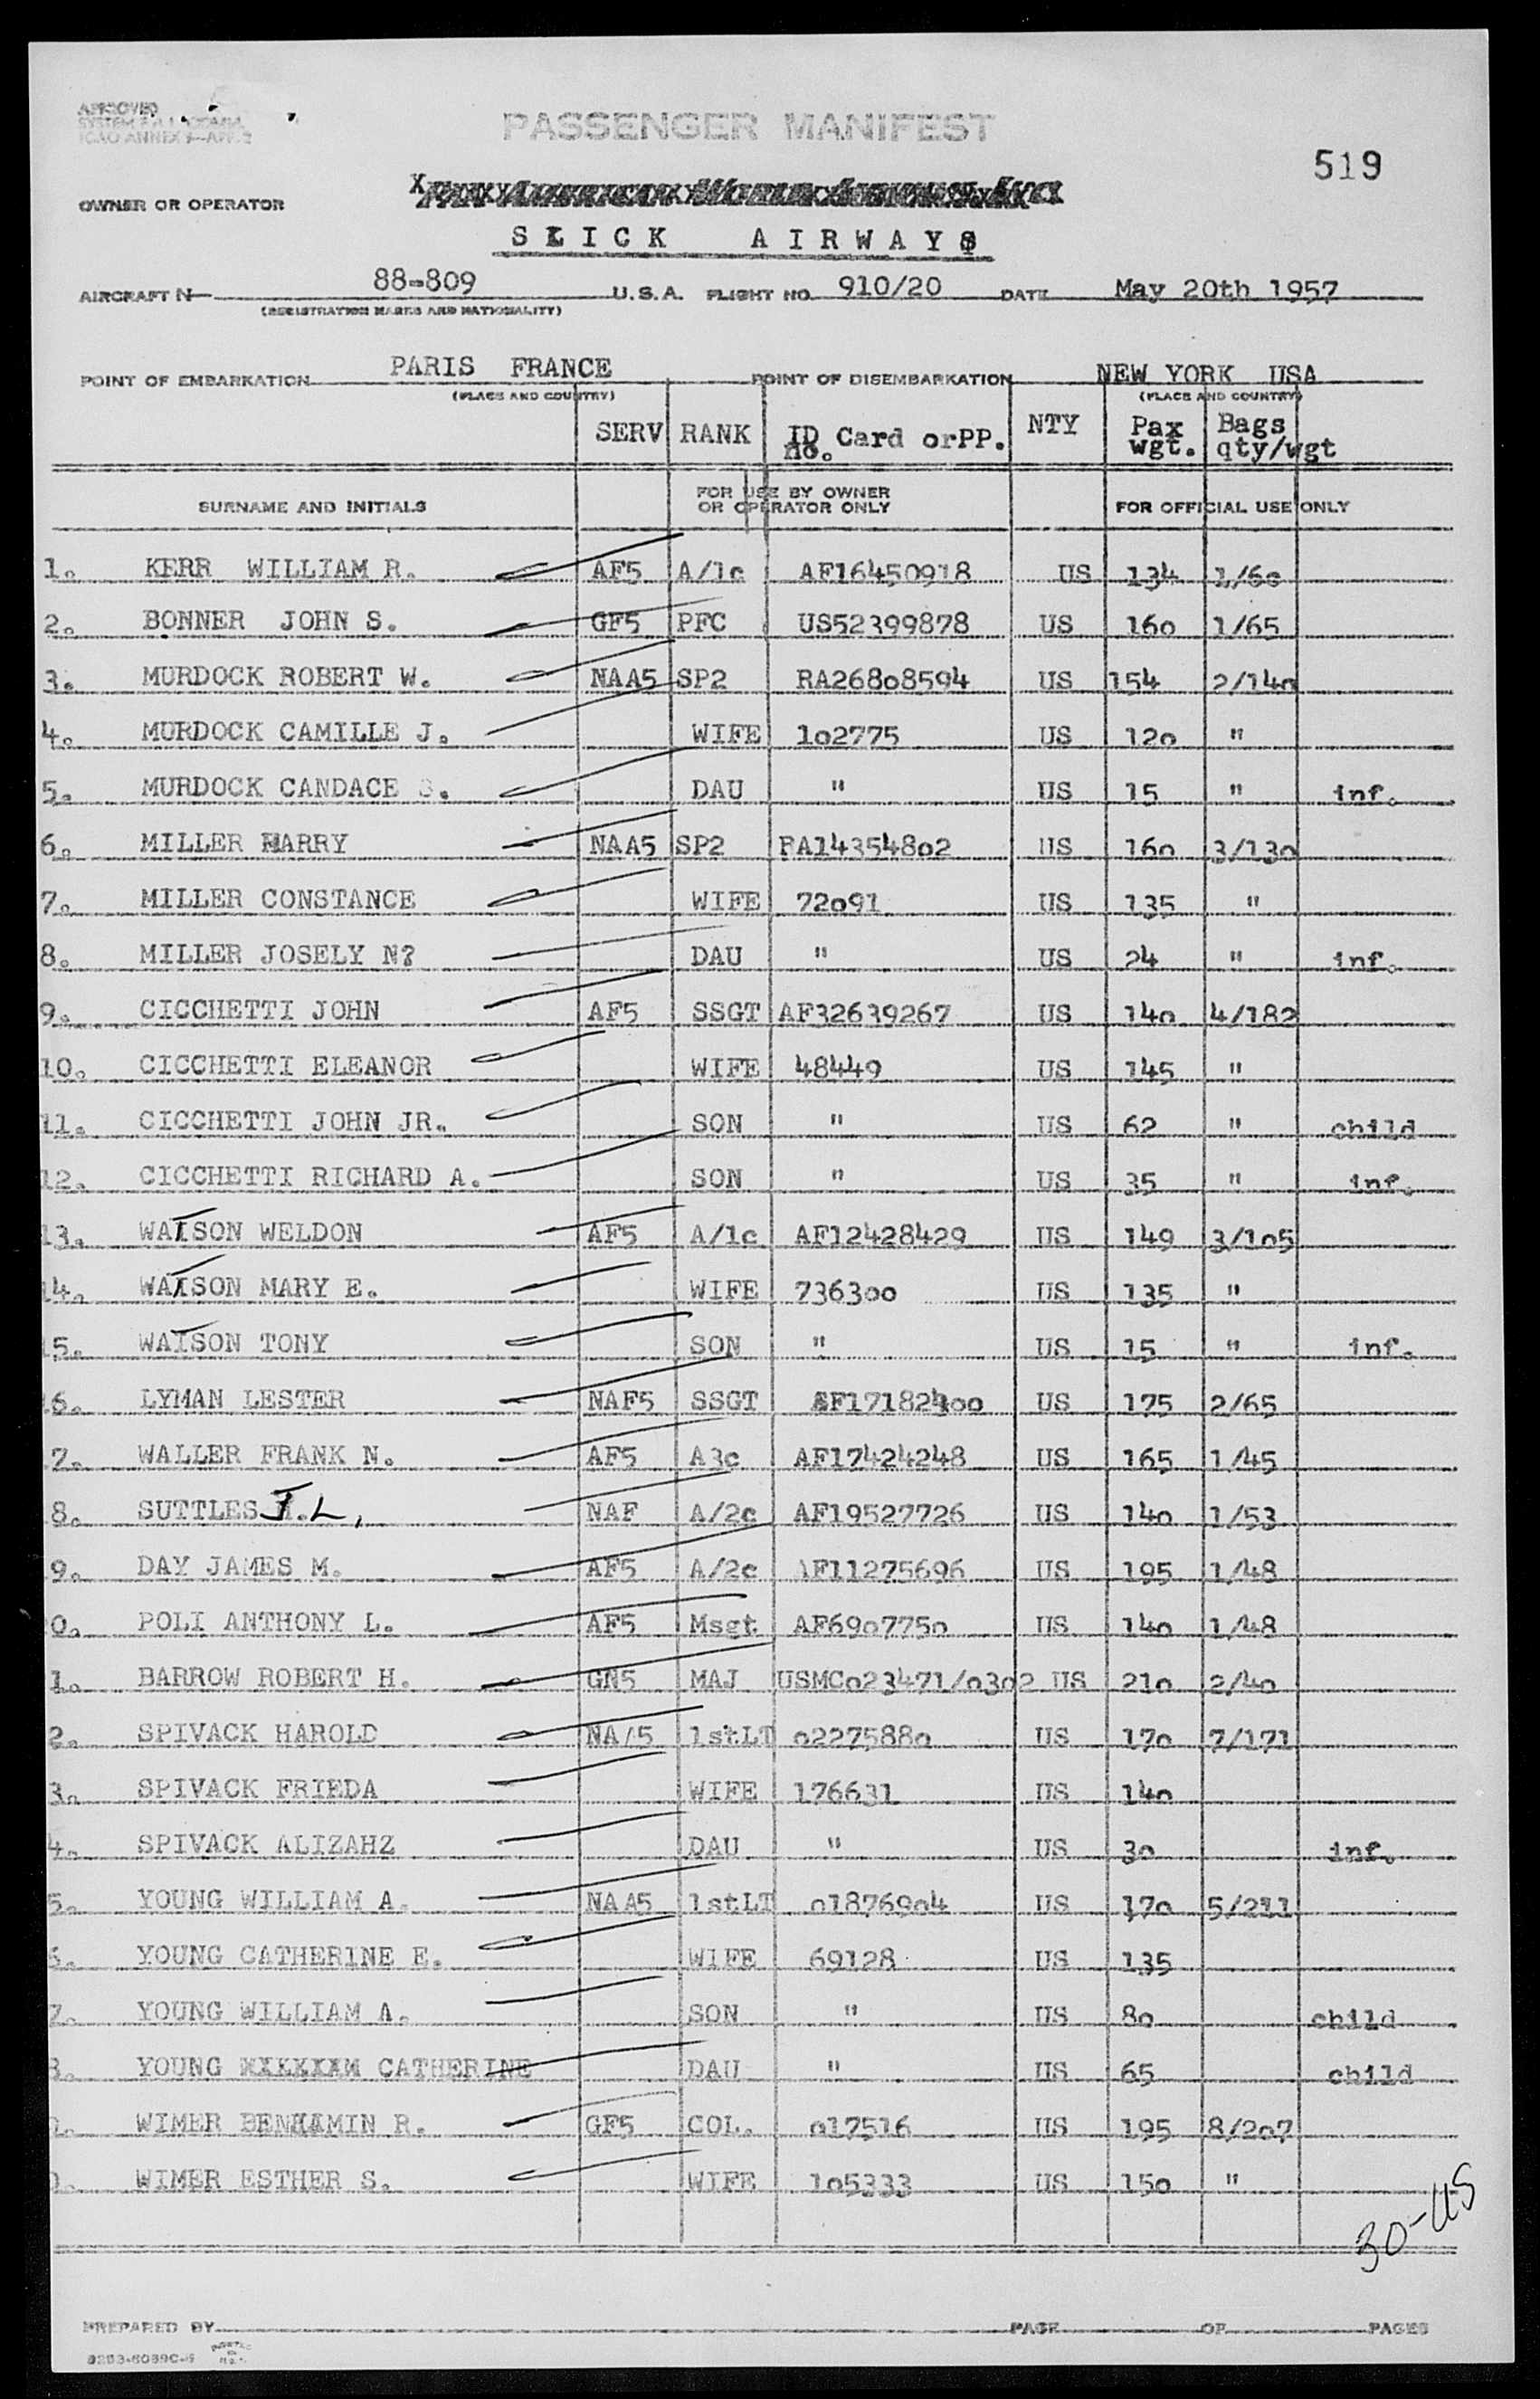 APPROVED
ICAO ANNEX 9—APP. 2
PASSENGER MANIFEST
519
OWNER OR OPERATOR
SLICK AIRWAYS
AIRCRAFT N 88-809 U.S.A. FLIGHT NO. 910/20 DATE May 20th 1957
(REGISTRATION MARKS AND NATIONALITY)
POINT OF EMBARKATION PARIS FRANCE POINT OF DISEMBARKATION NEW YORK USA
(PLACE AND COUNTRY) (PLACE AND COUNTRY)
SERV RANK ID Card orPP. no. NTY Pax wgt. Bags qty/wgt
SURNAME AND INITIALS FOR USE BY OWNER OR OPERATOR ONLY FOR OFFICIAL USE ONLY
1. KERR WILLIAM R. AF5 A/1c AF16450918 US 134 1/60
2. BONNER JOHN S. GF5 PFC US52399878 US 160 1/65
3. MURDOCK ROBERT W. NAA5 SP2 RA26808594 US 154 2/140
4. MURDOCK CAMILLE J. WIFE 102775 US 120 "
5. MURDOCK CANDACE S. DAU " US 15 " inf.
6. MILLER HARRY NAA5 SP2 RA14354802 US 160 3/130
7. MILLER CONSTANCE WIFE 72091 US 135 "
8. MILLER JOSELY N? DAU " US 24 " inf.
9. CICCHETTI JOHN AF5 SSGT AF32639267 US 140 4/182
10. CICCHETTI ELEANOR WIFE 48449 US 145 "
11. CICCHETTI JOHN JR. SON " US 62 " child
12. CICCHETTI RICHARD A. SON " US 35 " inf.
13. WATSON WELDON AF5 A/1c AF12428429 US 149 3/105
14. WATSON MARY E. WIFE 736300 US 135 "
5. WATSON TONY SON " US 15 " inf.
6. LYMAN LESTER NAF5 SSGT AF17182400 US 175 2/65
7. WALLER FRANK N. AF5 A3c AF17424248 US 165 1/45
8. SUTTLES J.L. NAF A/2c AF19527726 US 140 1/53
9. DAY JAMES M. AF5 A/2c AF11275696 US 195 1/48
0. POLI ANTHONY L. AF5 Msgt AF6907750 US 140 1/48
1. BARROW ROBERT H. GN5 MAJ USMC023471/0302 US 210 2/40
2. SPIVACK HAROLD NAA5 1stLT 02275880 US 170 7/171
3. SPIVACK FRIEDA WIFE 176631 US 140
4. SPIVACK ALIZAHZ DAU " US 30 inf.
5. YOUNG WILLIAM A. NAA5 1stLT 01876904 US 170 5/211
6. YOUNG CATHERINE E. WIFE 69128 US 135
7. YOUNG WILLIAM A. SON " US 80 child
8. YOUNG CATHERINE DAU " US 65 child
WIMER BENJAMIN R. GF5 COL. 017516 US 195 8/207
WIMER ESTHER S. WIFE 105333 US 150 "
30-US
PREPARED BY PAGE OF PAGES